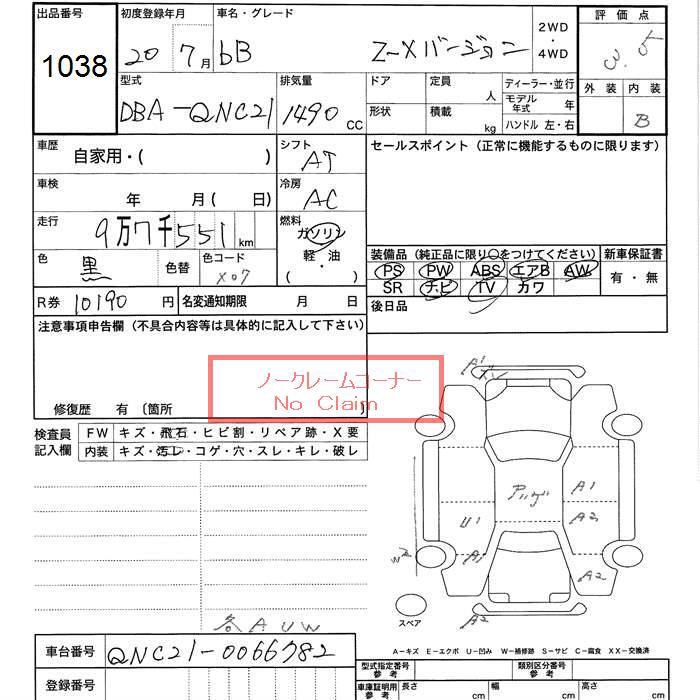 出品番号 初度登録年月 車名・グレード 2WD・4WD 評価点
1038 20 7月 bB Z-Xバージョン 3.5
型式 排気量 ドア 定員 人 ディーラー・並行 外装 内装
DBA-QNC21 1490 CC 形状 積載 kg モデル年式 年 B
ハンドル 左・右
車歴 自家用・( ) シフト AT セールスポイント（正常に機能するものに限ります）
車検 年 月( 日) 冷房 AC
走行 9万7千551km 燃料 ガソリン・軽油
色 黒 色替 色コード X07 ( ・ )
装備品（純正品に限り○をつけてください） 新車保証書
PS PW ABS エアB AW 有・無
SR ナビ TV カワ
R券 10190円 名変通知期限 月 日 後日品
注意事項申告欄（不具合内容等は具体的に記入して下さい）
ノークレームコーナー
No Claim
修復歴 有〔箇所
検査員記入欄 FW キズ・飛石・ヒビ割・リペア跡・X要
内装 キズ・汚レ・コゲ・穴・スレ・キレ・破レ
A1
A1
U1 A2
A1
W2
A2
スペア A2
各AUW
A-キズ E-エクボ U-凹み W-補修跡 S-サビ C-腐食 XX-交換済
車台番号 QNC21-0066782
型式指定番号 参考 類別区分番号 参考
登録番号 車庫証明用 参考 長さ cm 幅 cm 高さ cm